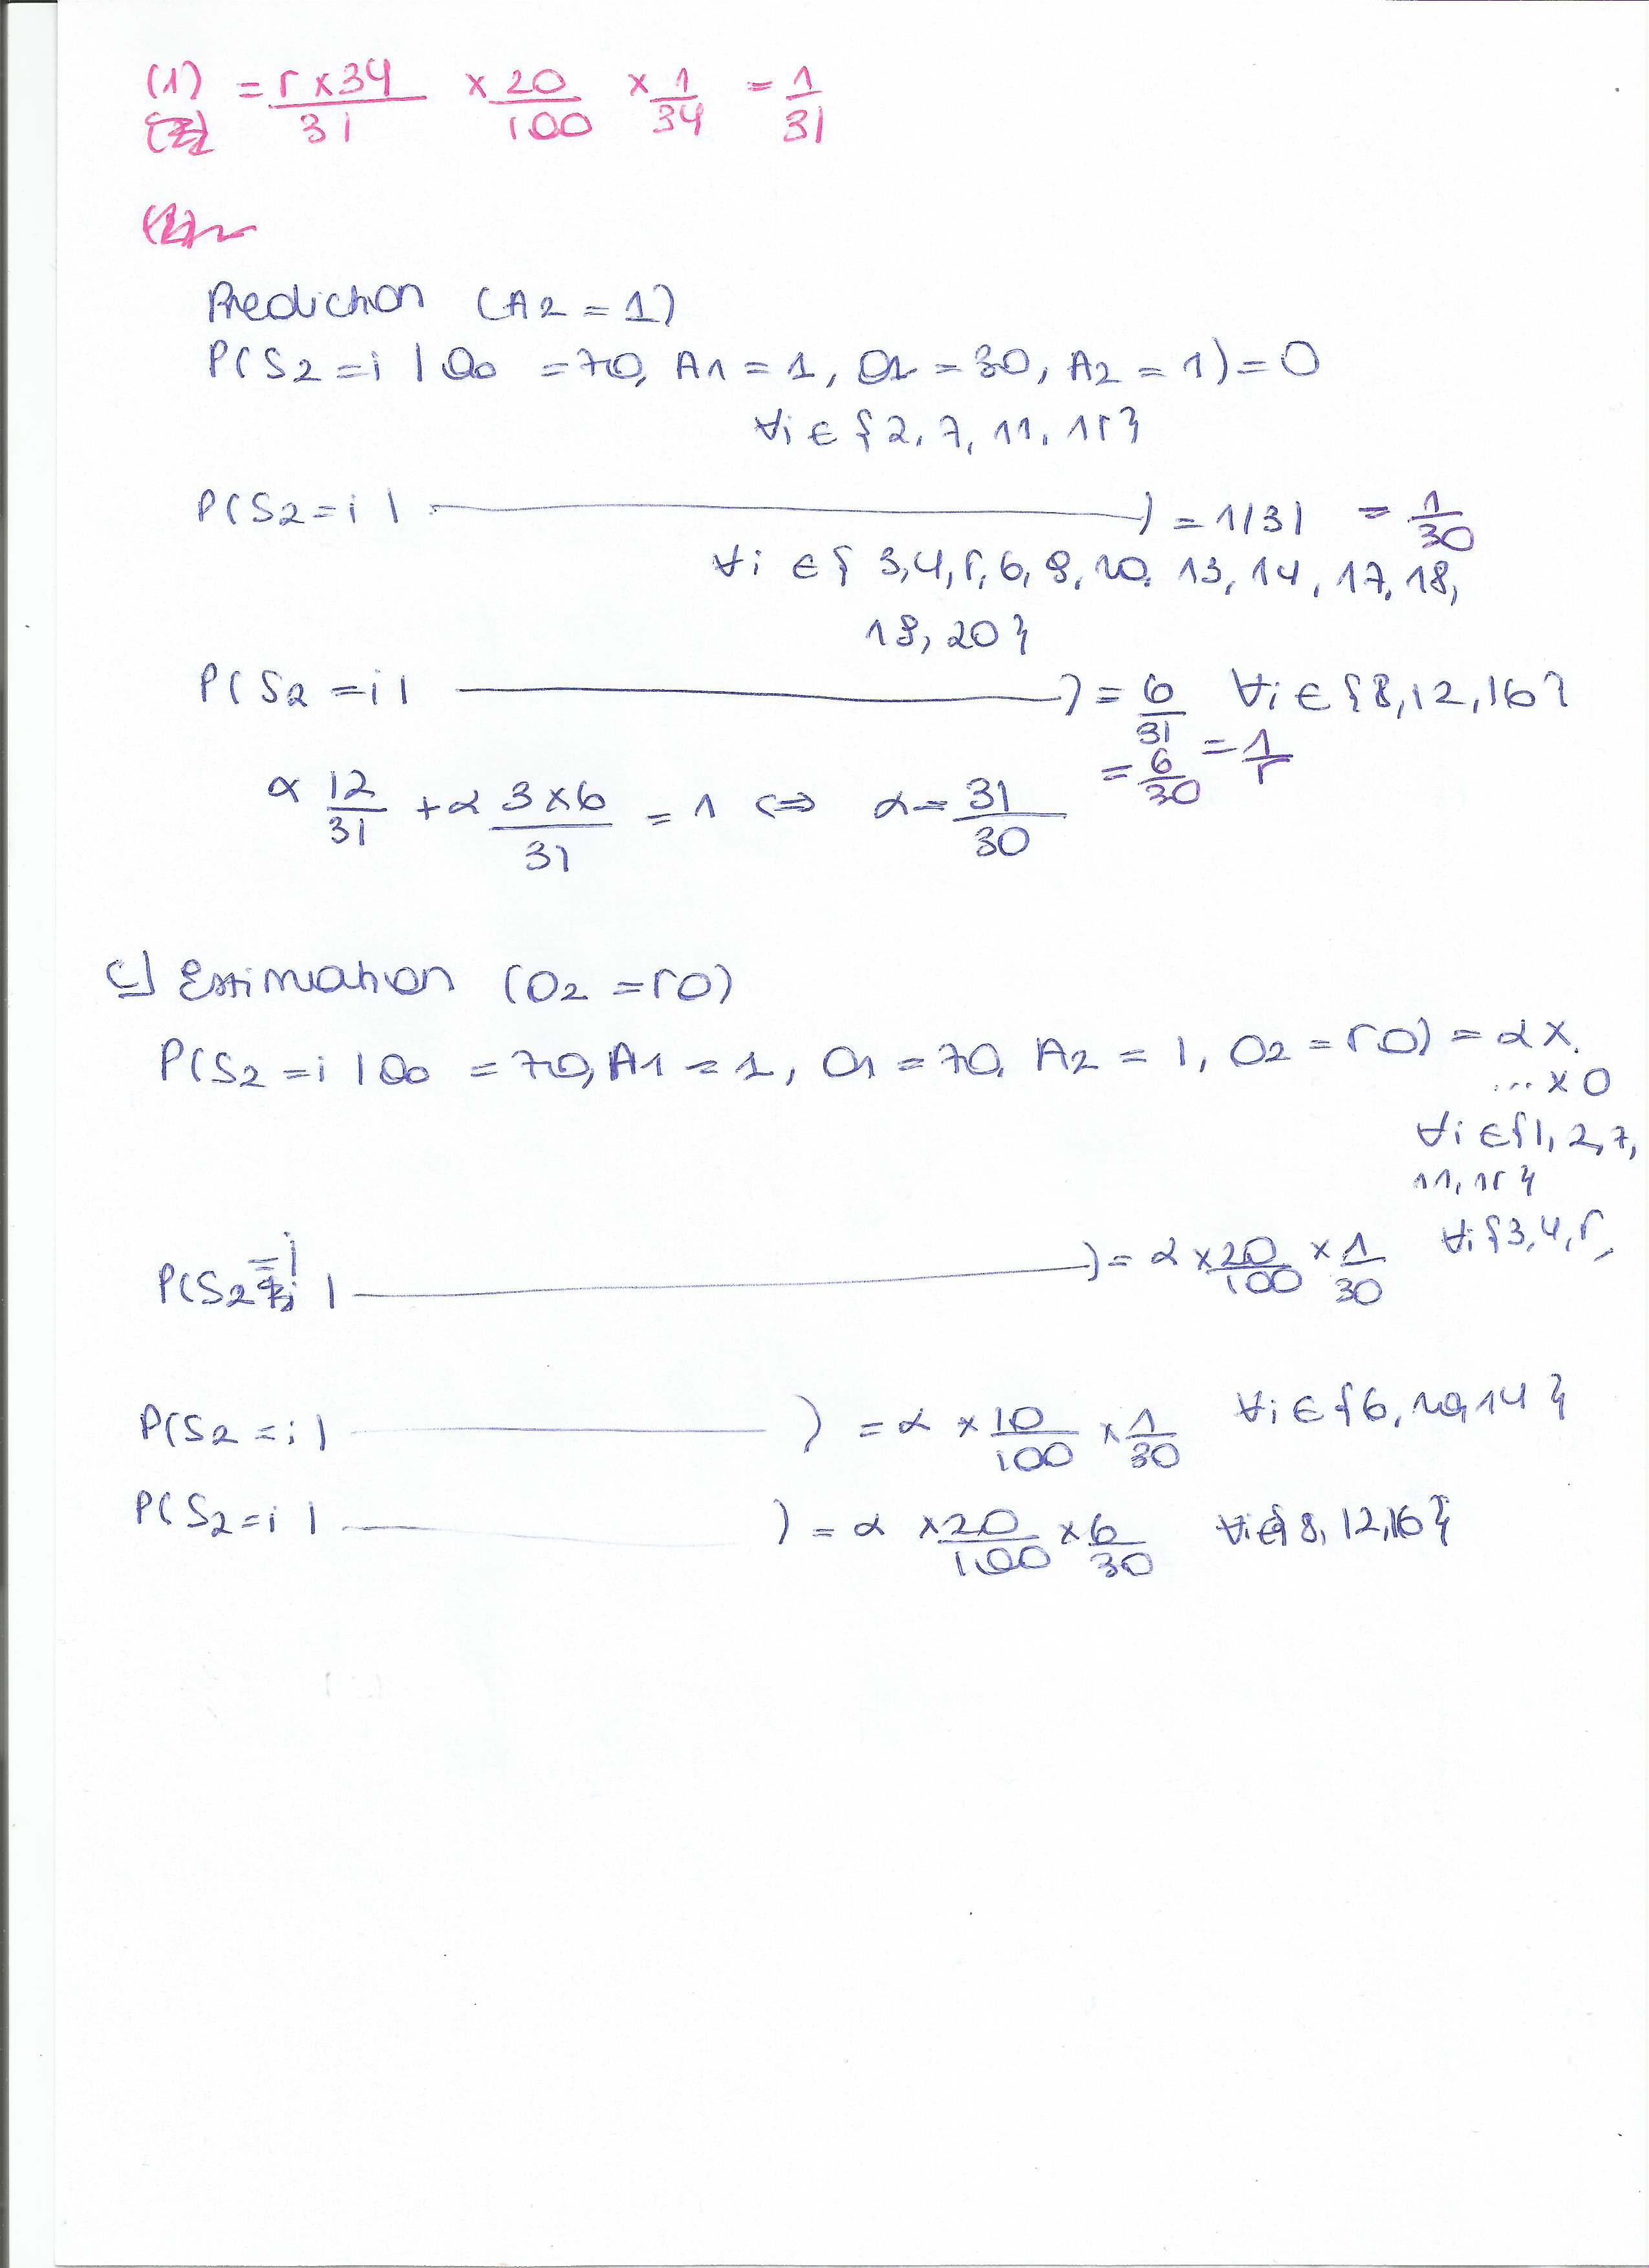 (1) = 5 x 34 / 31 x 20 / 100 x 1 / 34 = 1 / 31
Prediction (A2 = 1)
P(S2 = i | O0 = 70, A1 = 1, O1 = 30, A2 = 1) = 0
∀i ∈ {2, 7, 11, 15}
P(S2 = i | ———) = 1/31 = 1/30
∀i ∈ { 3, 4, 5, 6, 9, 10, 13, 14, 17, 18,
19, 20}
P(S2 = i | ———) = 6/31 ∀i ∈ {8, 12, 16}
= 6/30 = 1/5
α 12/31 + α 3 x 6 / 31 = 1 ⇔ α = 31/30
c) Estimation (O2 = 50)
P(S2 = i | O0 = 70, A1 = 1, O1 = 70, A2 = 1, O2 = 50) = α x
... x 0
∀i ∈ {1, 2, 7,
11, 15}
P(S2 = i | ———) = α x 20/100 x 1/30 ∀i {3, 4, 5,
P(S2 = i | ———) = α x 10/100 x 1/30 ∀i ∈ {6, 10, 14}
P(S2 = i | ———) = α x 20/100 x 6/30 ∀i ∈ {8, 12, 16}